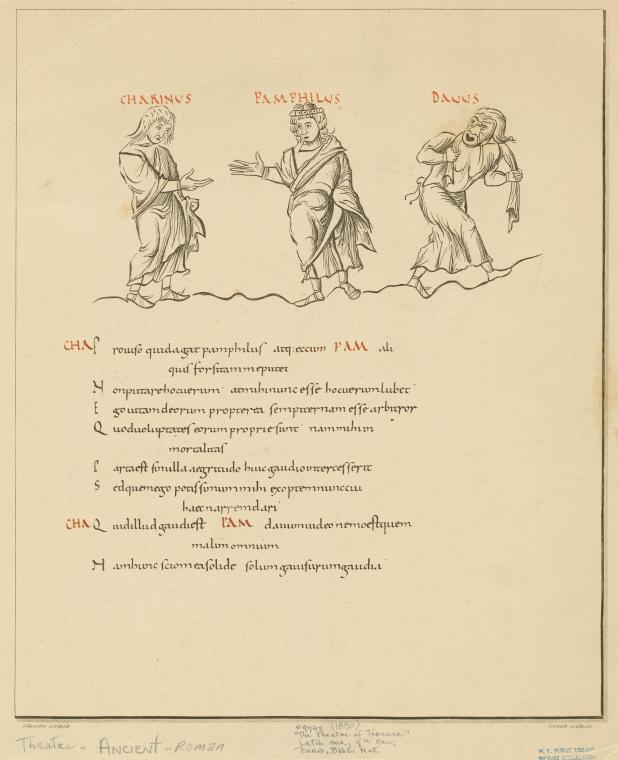 CHARINUS PAMPHILUS DAUUS
CHA P rouiso quidagat pamphilus atq; eccum PAM ali
quis forsitam meputet
N onputare hocuerum atmihinunc esse hocuerum lubet
E go uitam deorum propterea sempiternam esse arbitror
Q uoduoluptates eorum proprie sunt nam mihi in
mortalitas
P arta est sinulla aegritudo huic gaudio intercesserit
S ed quem ego potissimum mihi exoptem nunc cui
haec narrem dari
CHA Q uid illud gaudi est PAM dauum uideo nemo est quem
malim omnium
N am hunc scio mea solide solum gauisurum gaudia
Theatre - ANCIENT - ROMAN
(1850)
"The Theatre of Terence"
Latin ms., 9th Cen.
Paris, Bibl. Nat.
N. Y. PUBLIC LIBRARY
PICTURE COLLECTION